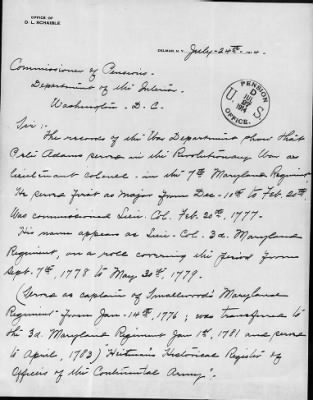 OFFICE OF
D. L. SCHAIBLE
DELMAR, N.Y. July-24th-14.
Commissioner of Pensions.
Department of the Interior.
Washington. D.C.
PENSION
U. S.
OFFICE.
Sir:-
The records of the War Department show that
Peter Adams served in the Revolutionary War as
lieutenant colonel - in the 7th Maryland Regiment
He served first as Major from Dec - 10th to Feb. 20th.
Was commissioned Lieu. Col. Feb. 20th, 1777.
His name appears as Lieu-Col. 3d. Maryland
Regiment, on a roll covering the period from
Sept. 7th, 1778 to May 20th, 1779.
(Served as captain of Smallwood's Maryland
Regiment from Jan-14th, 1776; was transferred to
the 3d. Maryland Regiment Jan 1st, 1781 and served
to April, 1783) "Heitman's Historical Register of
Officers of the Continental Army".